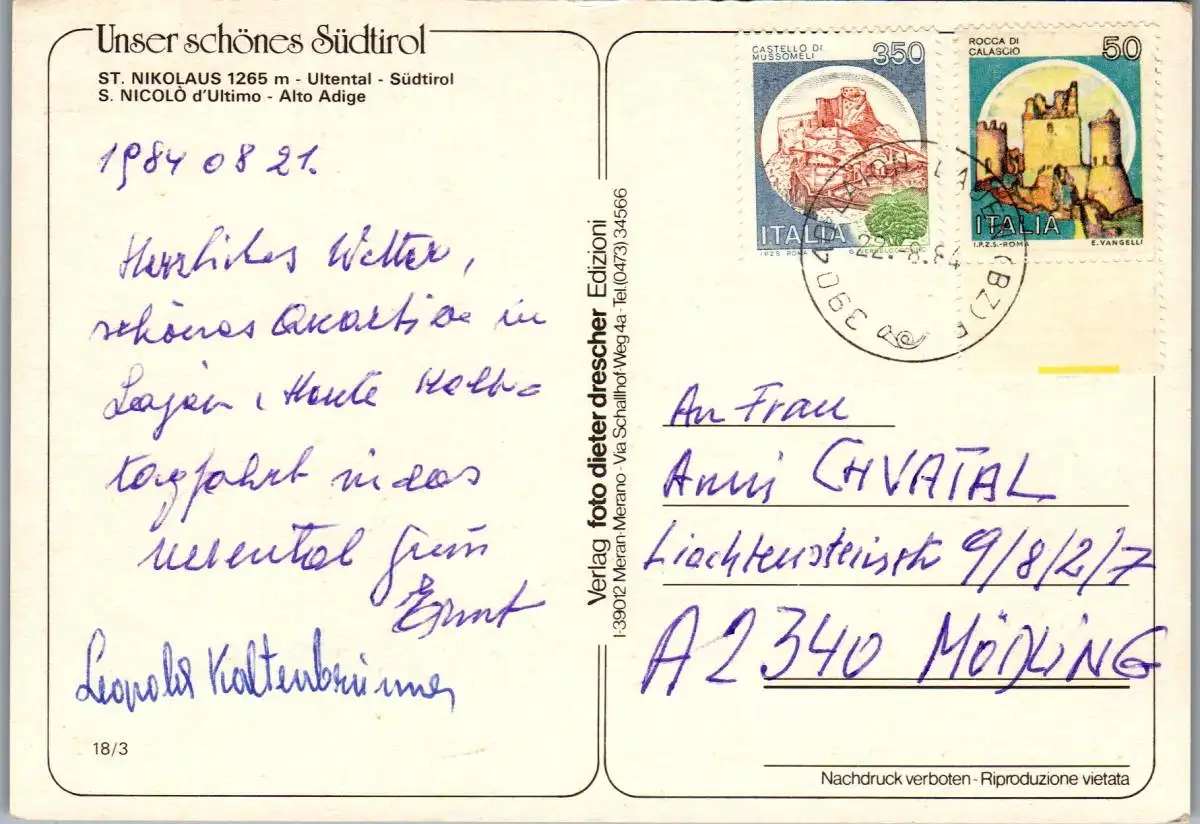 Unser schönes Südtirol
ST. NIKOLAUS 1265 m - Ultental - Südtirol
S. NICOLÒ d'Ultimo - Alto Adige
1984 08 21.
Herrliches Wetter,
schönes Quartier in
Lajen, Heute Halb-
tagfahrt in das
Ultental
Ernst
Leopold Kaltenbrunner
18/3
Verlag foto dieter drescher Edizioni
I-39012 Meran-Merano - Via Schallhof-Weg 4a - Tel. (0473) 34566
CASTELLO DI
MUSSOMELI
350
ITALIA
I.P.Z.S. ROMA
ROCCA DI
CALASCIO
50
ITALIA
I.P.Z.S.-ROMA
E. VANGELLI
39040 LAION LAJEN (BZ)
22.-8.84
An Frau
Anni CHVATAL
Liechtensteinstr 9/8/2/7
A 2340 MÖDLING
Nachdruck verboten - Riproduzione vietata